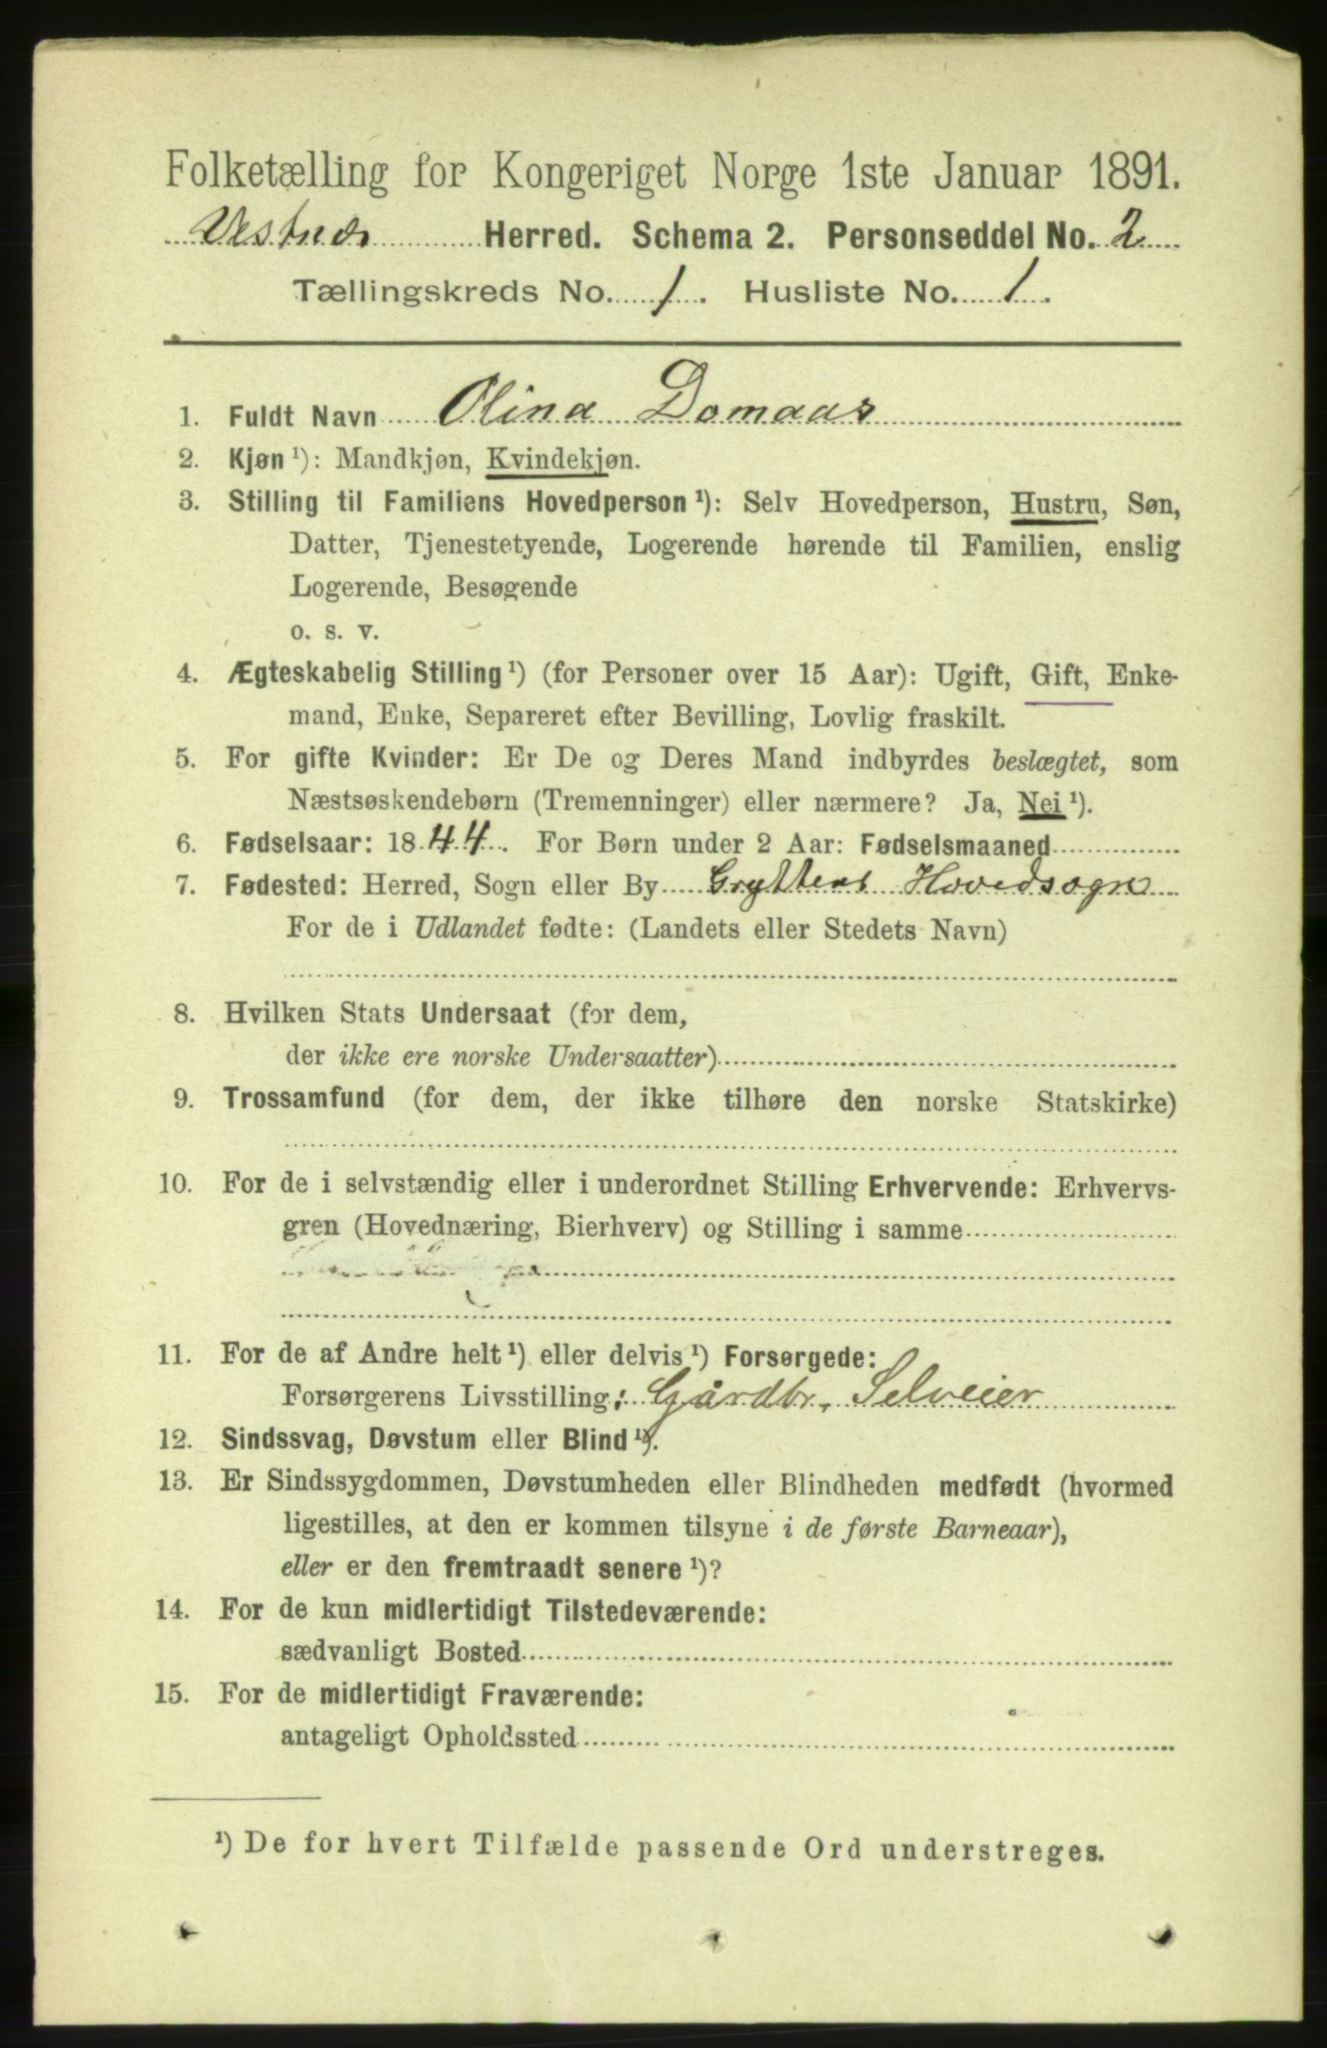 Folketælling for Kongeriget Norge 1ste Januar 1891.
Vestnes Herred. Schema 2. Personseddel No. 2
Tællingskreds No. 1. Husliste No. 1.
1. Fuldt Navn Olina Domaas
2. Kjøn ¹): Mandkjøn, Kvindekjøn.
3. Stilling til Familiens Hovedperson ¹): Selv Hovedperson, Hustru, Søn,
Datter, Tjenestetyende, Logerende hørende til Familien, enslig
Logerende, Besøgende
o. s. v.
4. Ægteskabelig Stilling ¹) (for Personer over 15 Aar): Ugift, Gift, Enke-
mand, Enke, Separeret efter Bevilling, Lovlig fraskilt.
5. For gifte Kvinder: Er De og Deres Mand indbyrdes beslægtet, som
Næstsøskendebørn (Tremenninger) eller nærmere? Ja, Nei ¹).
6. Fødselsaar: 1844. For Børn under 2 Aar: Fødselsmaaned
7. Fødested: Herred, Sogn eller By Gryttens Hovedsogn
For de i Udlandet fødte: (Landets eller Stedets Navn)
8. Hvilken Stats Undersaat (for dem,
der ikke ere norske Undersaatter)
9. Trossamfund (for dem, der ikke tilhøre den norske Statskirke)
10. For de i selvstændig eller i underordnet Stilling Erhvervende: Erhvervs-
gren (Hovednæring, Bierhverv) og Stilling i samme
11. For de af Andre helt ¹) eller delvis ¹) Forsørgede:
Forsørgerens Livsstilling: Gårdbr. Selveier
12. Sindssvag, Døvstum eller Blind ¹).
13. Er Sindssygdommen, Døvstumheden eller Blindheden medfødt (hvormed
ligestilles, at den er kommen tilsyne i de første Barneaar),
eller er den fremtraadt senere ¹)?
14. For de kun midlertidigt Tilstedeværende:
sædvanligt Bosted
15. For de midlertidigt Fraværende:
antageligt Opholdssted
¹) De for hvert Tilfælde passende Ord understreges.